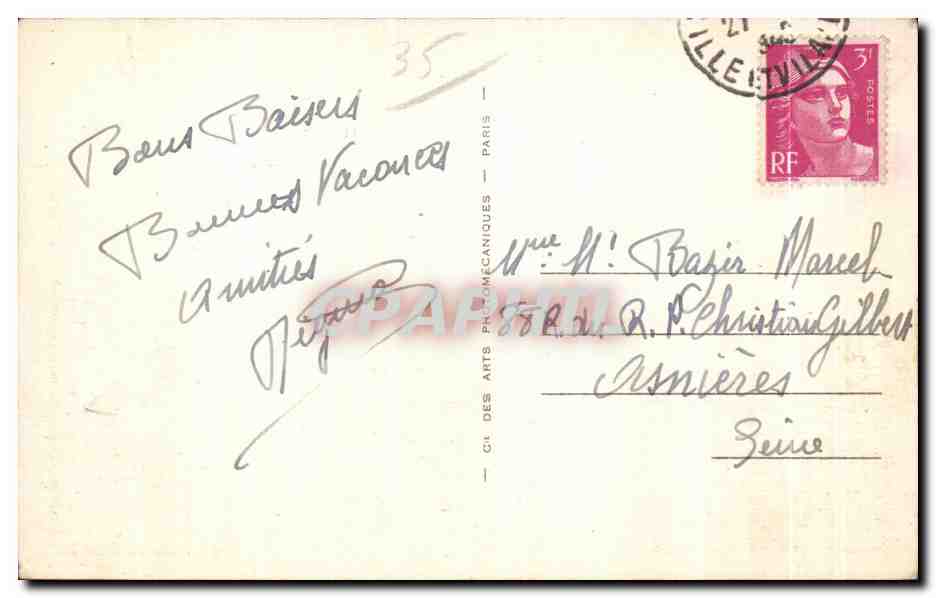 35
Bons Baisers
Bonnes Vacances
Amitiés
21
ILLE ET VILA
3F
POSTES
RF
Cie DES ARTS PHOTOMECANIQUES — PARIS —
Mme Mr Bazir Marcel
88 R. du R. P. Christian Gilbert
Asnières
Seine
CPAPHIL